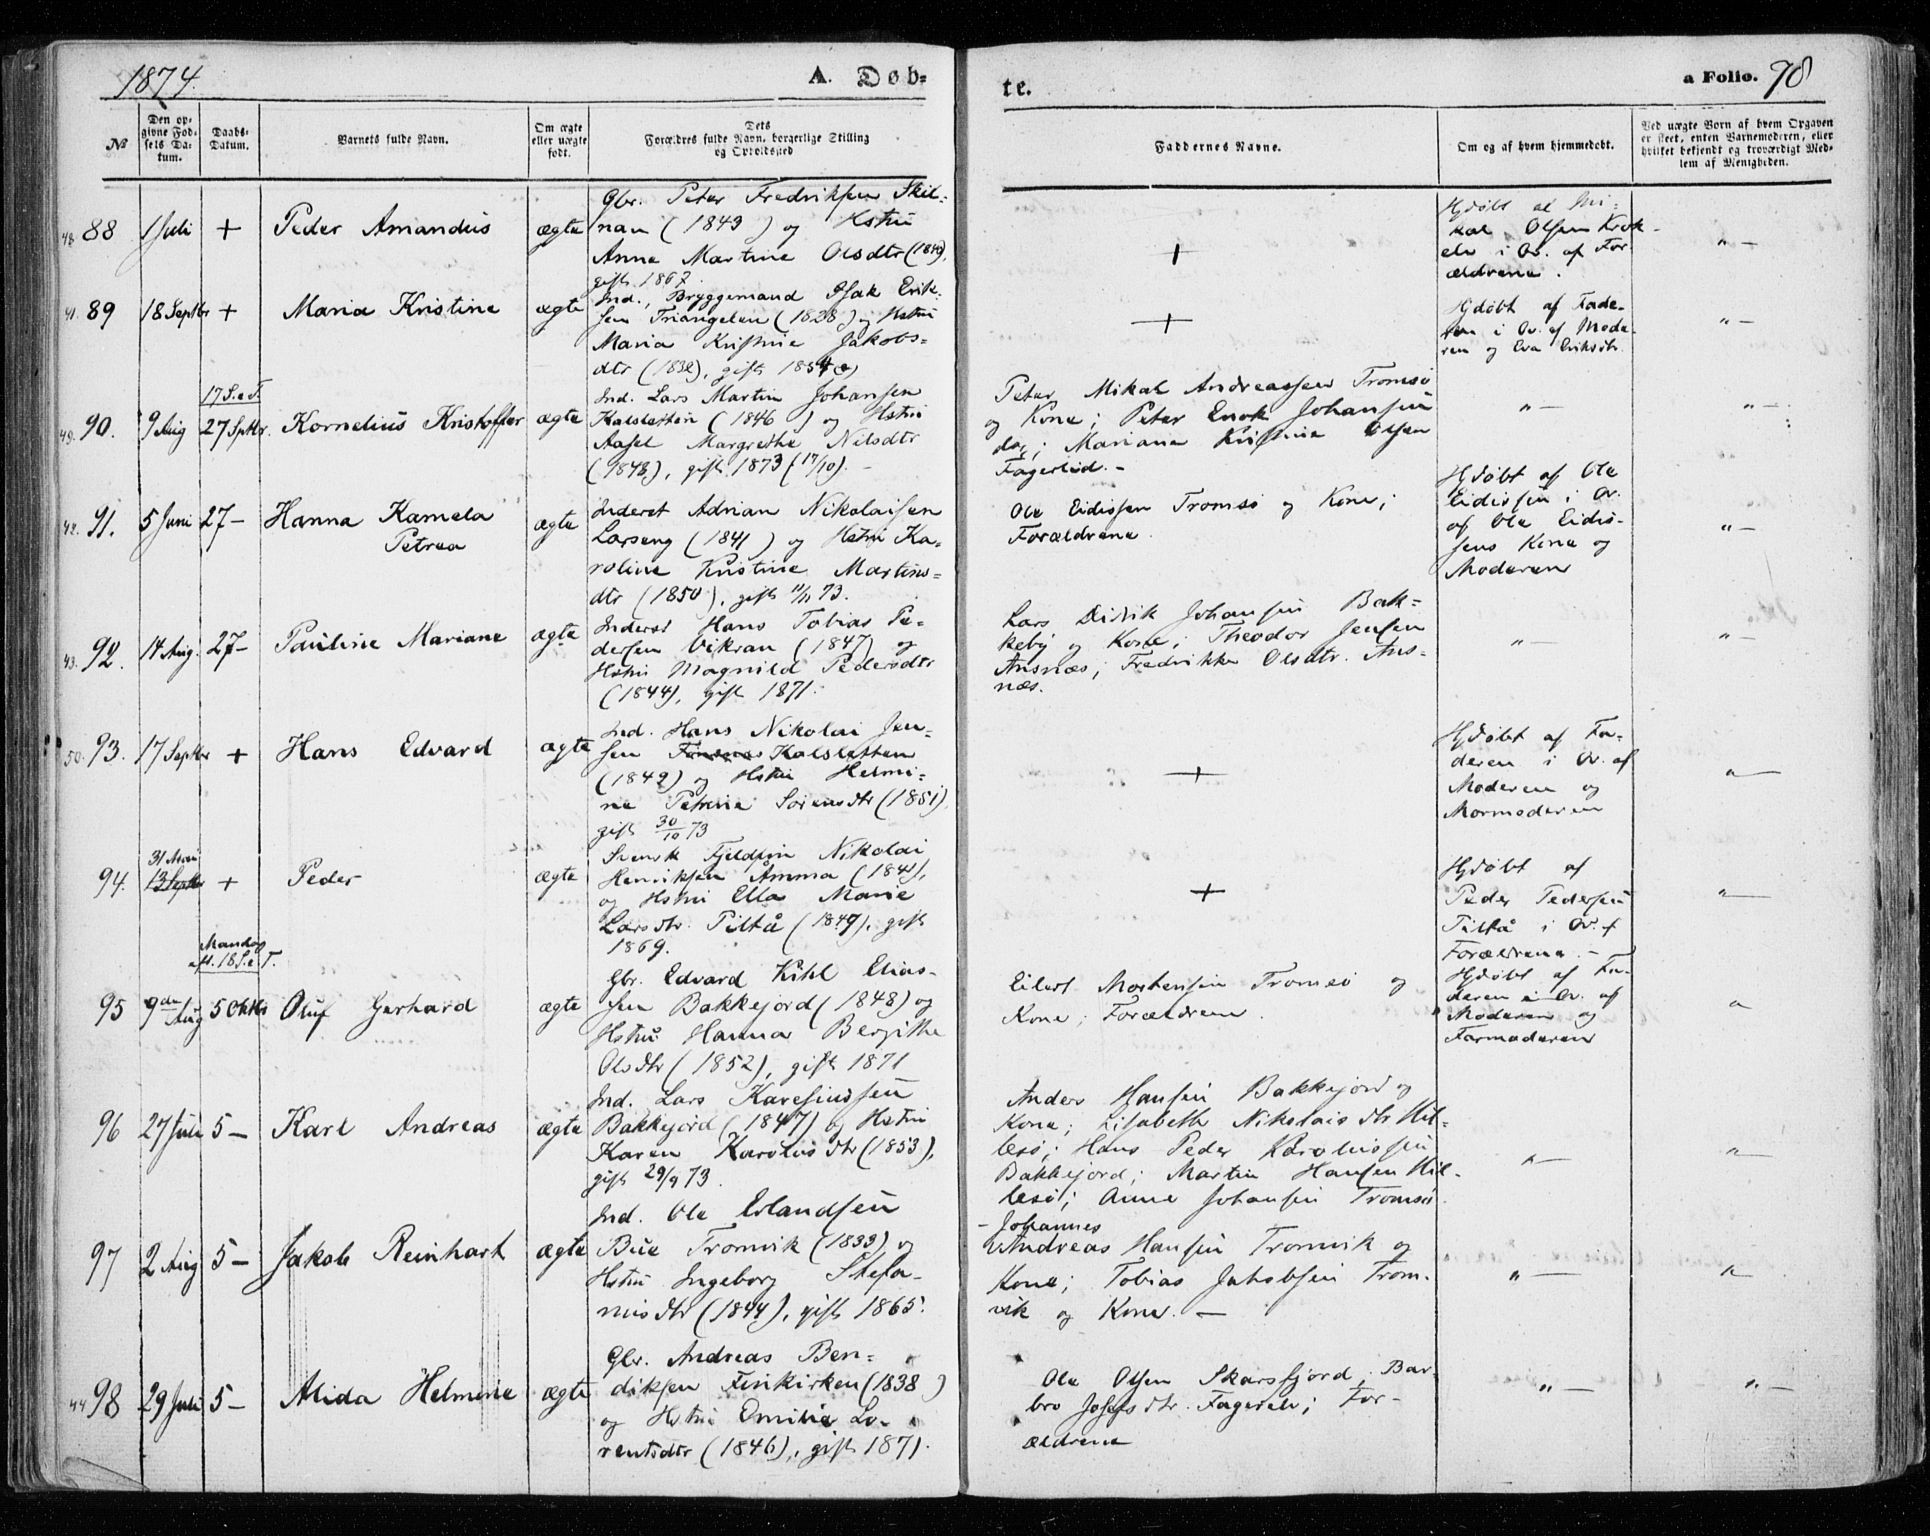 1874.
A. Døb-
te.
a Folio. 98
No
Den op-
givne Fød-
sels Da-
tum.
Daabs-
Datum.
Barnets fulde Navn.
Om ægte
eller uægte
født.
Dets
Forældres fulde Navn, borgerlige Stilling
og Opholdssted
Faddernes Navne.
Om og af hvem hjemmedøbt.
Ved uægte Børn af hvem Opgaven
er skeet, enten Barnemoderen, eller
hvilket bekjendt og troværdigt Med-
lem af Menigheden.
48. 88 1 Juli + Peder Amandus ægte
Gbr. Peter Fredriksen Skil-
nan (1843) og Hstru
Anna Martine Olsdtr (1849),
gift 1867.
+
Hjdøbt af Mi-
kal Olsen Krok-
elv i Ov. af For-
ældrene.
" —
41. 89 18 Septbr + Maria Kristine ægte
Ind., Bryggemand Isak Erik-
sen Triangelen (1828) og Hstru
Maria Kristine Jakobs-
dtr (1832), gift 1854
+
Hjdøbt af Fade-
ren i Ov. af Mode-
ren og Eva Eriksdtr.
" —
17 S. e. T.
49. 90. 9 Aug 27 Septbr. Kornelius Kristoffer ægte
Ind. Lars Martin Johansen
Kalsletten (1846) og Hstru
Aasel Margrethe Nilsdtr
(1848), gift 1873 (17/10). —
Peter Mikal Andreassen Tromsø
og Kone; Peter Enok Johansen
do; Mariana Kristine Olsen
Fagerlid. —
" —
" —
42. 91. 5 Juni 27 — Hanna Kamela
Petrea
ægte
Inderst Adrian Nikolaisen
Larseng (1841) og Hstru Ka-
roline Kristine Martins-
dtr (1850), gift 11/11 73.
Ole Eidissen Tromsø og Kone;
Forældrene.
Hjdøbt af Ole
Eidissen i Ov.
af Ole Eidis-
sens Kone og
Moderen
" —
43. 92. 14 Aug. 27 — Pauline Mariane ægte
Inderst Hans Tobias Pe-
dersen Vikran (1847) og
Hstru Magnild Pedersdtr
(1844), gift 1871.
Lars Didrik Johansen Bak-
keby og Kone; Theodor Jensen
Ansnæs; Fredrikke Olsdtr. Ans-
næs.
" —
" —
50. 93. 17 Septbr + Hans Edvard ægte
Ind. Hans Nikolai Jen-
sen Kalsletten
(1842) og Hstru Helmi-
ne Petrine Sørensdtr (1851),
gift 30/10 73
+
Hjdøbt af Fa-
deren i Ov. af
Moderen og
Mormoderen
" —
94. 13 Septbr + Peder ægte
Svensk Fjeldfin Nikolai
Henriksen Åmma (1841),
og Hstru Ella Marie
Larsdtr. Piltå (1847), gift
1869.
+
Hjdøbt af
Peder Pedersen
Piltå i Ov. af
Forældrene. —
" —
Mandag
eft. 18 S. e. T.
95 9de Aug 5 Oktbr Oluf Gerhard ægte
Gbr. Edvard Kihl Elias-
sen Bakkejord (1848) og
Hstru Hanna Bergithe
Olsdtr (1852), gift 1871
Eilert Mortensen Tromsø og
Kone; Forældrene.
Hjdøbt af Fa-
deren i Ov. af
Moderen og
Farmoderen
"
96 27 Juli 5 — Karl Andreas ægte
Ind. Lars Karesiussen
Bakkejord (1847) og Hstru
Karen Karolusdtr (1853),
gift 29/9 73.
Anders Hansen Bakkejord og
Kone; Lisabeth Nikolaisdtr Hil-
lesø; Hans Peder Karolussen
Bakkejord; Martin Hansen Hil-
lesø; Anne Johansen Tromsø.
" —
" —
97 2 Aug 5 — Jakob Reinhart ægte
Ind. Ole Erlandsen
Bue Tromvik (1833) og
Hstru Ingeborg Stefa-
nusdtr (1844), gift 1865.
Johannes
Andreas Hansen Tromvik og
Kone; Tobias Jakobsen Trom-
vik og Kone. —
" —
" —
44 98 29 Juli 5 — Alida Helmine ægte
Gbr. Andreas Ben-
diksen Finkirken (1838)
og Hstru Emilie Lo-
rentsdtr (1846), gift 1871.
Ole Olsen Skarsfjord; Bar-
bro Josefsdtr. Fagerelv; For-
ældrene
" —
" —